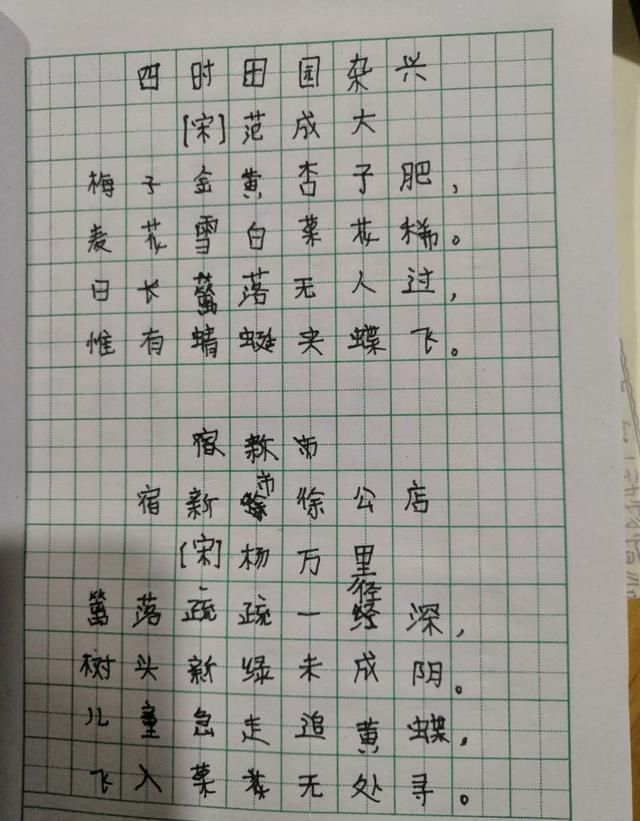 四时田园杂兴
[宋]范成大
梅子金黄杏子肥，
麦花雪白菜花稀。
日长篱落无人过，
惟有蜻蜓夹蝶飞。
宿新市
宿新市徐公店
[宋]杨万里
篱落疏疏一径深，
树头新绿未成阴。
儿童急走追黄蝶，
飞入菜花无处寻。